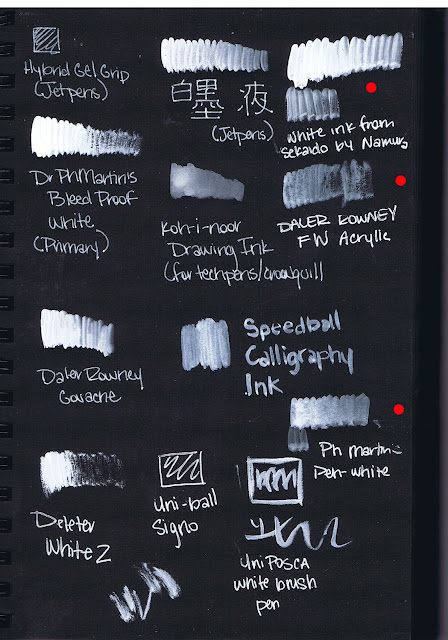 Hybrid Gel Grip
(Jetpens)
白墨液
(Jetpens)
white ink from
Sekaido by Namura
Dr Ph Martinis
Bleed Proof
White
(Primary)
Koh-i-noor
Drawing Ink
(for techpens/crowquill
DALER ROWNEY
FW Acrylic
Daler Rowney
Gouache
Speedball
Calligraphy
Ink
Ph martins
Pen-white
Deleter
White 2
Uni-ball
Signo
Uni POSCA
white brush
pen